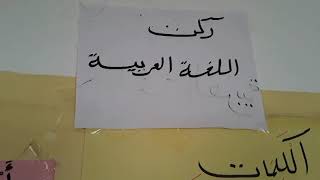 ركن
اللغة العربية
الكلمات